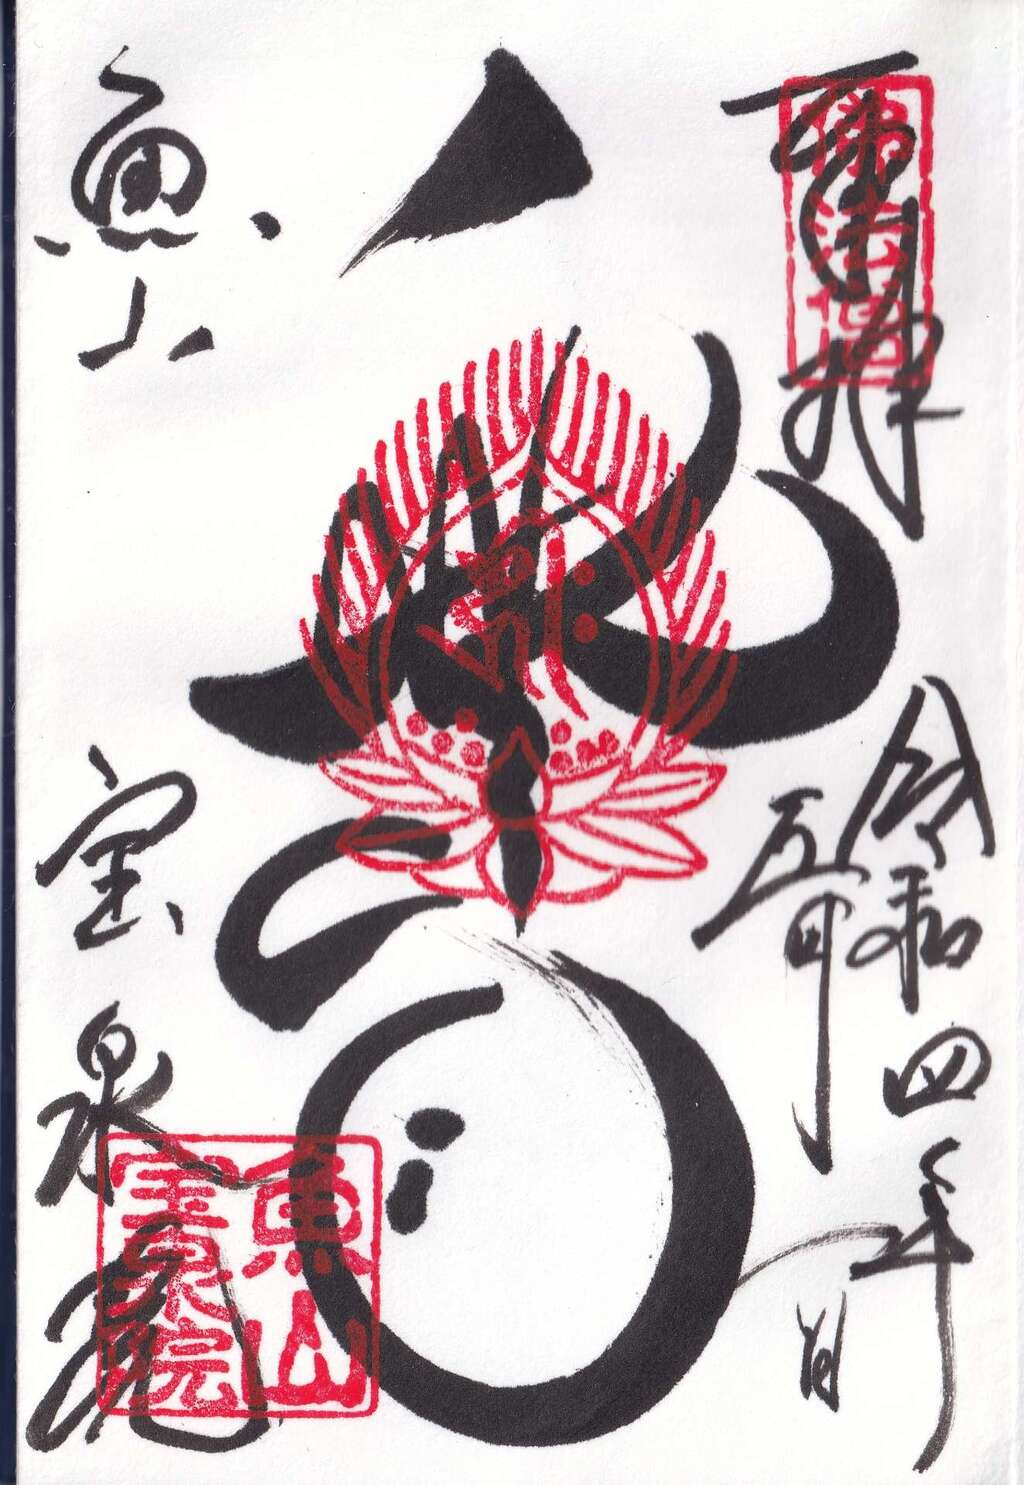 奉拝
佛法僧
令和四年
五月一日
魚山 宝泉院
魚山
寶泉院